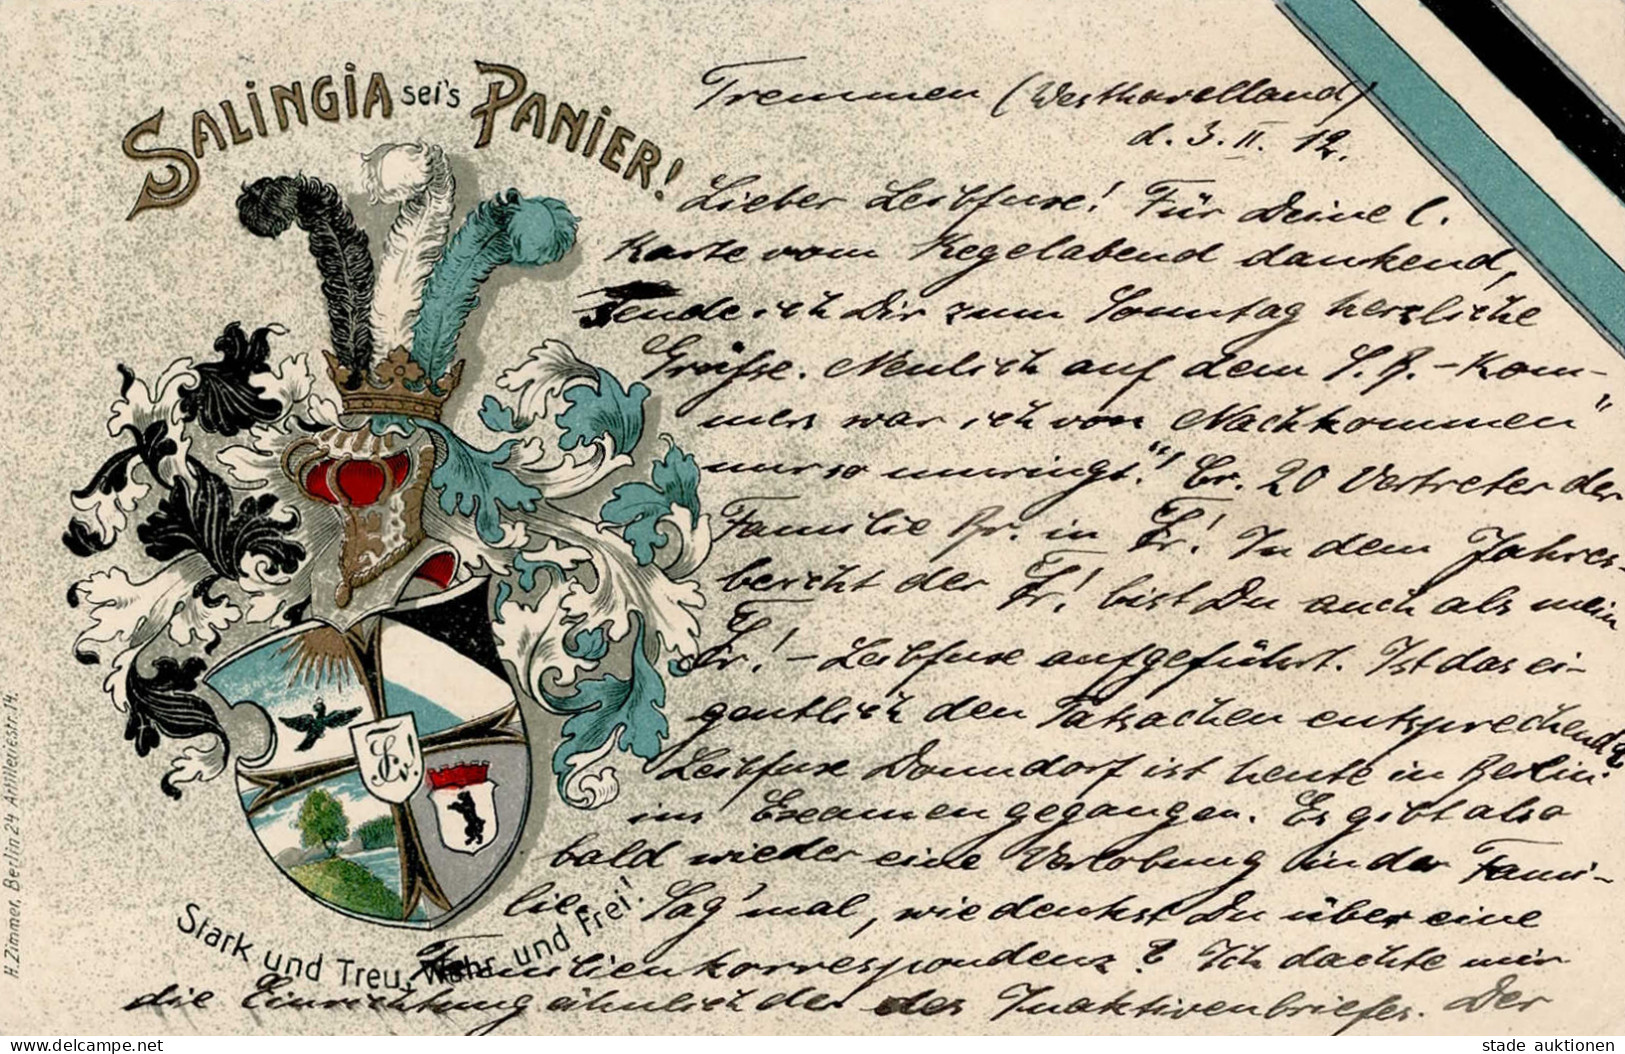 SALINGIA sei's PANIER!
Tremmen (Westhavelland)
d. 3. II. 12.
Lieber Leibfuxe! Für Deine l.
Karte vom Kegelabend dankend,
sende ich Dir zum Sonntag herzliche
Grüsse. Neulich auf dem S. B. - Kom-
mers war ich von „Nachkommen"
nur so umringt." Ca. 20 Vertreter der
Familie Br. in Fr.! In dem Jahres-
bericht der Fr! bist Du auch als mein
Fr! - Leibfuxe aufgeführt. Ist das ei-
gentlich den Tatsachen entsprechend?
Leibfuxe Donndorf ist heute in Berlin
ins Examen gegangen. Es gibt also
bald wieder eine Verlobung in der Fami-
lie. Sag' mal, wie denkst Du über eine
Familienkorrespondenz? Ich dachte mir
die Einrichtung ähnlich der des Inaktivenbriefes. Der
Stark und Treu, Wahr und Frei!
H. Zimmer, Berlin 24 Artilleriestr. 14.
stade auktionen
www.delcampe.net